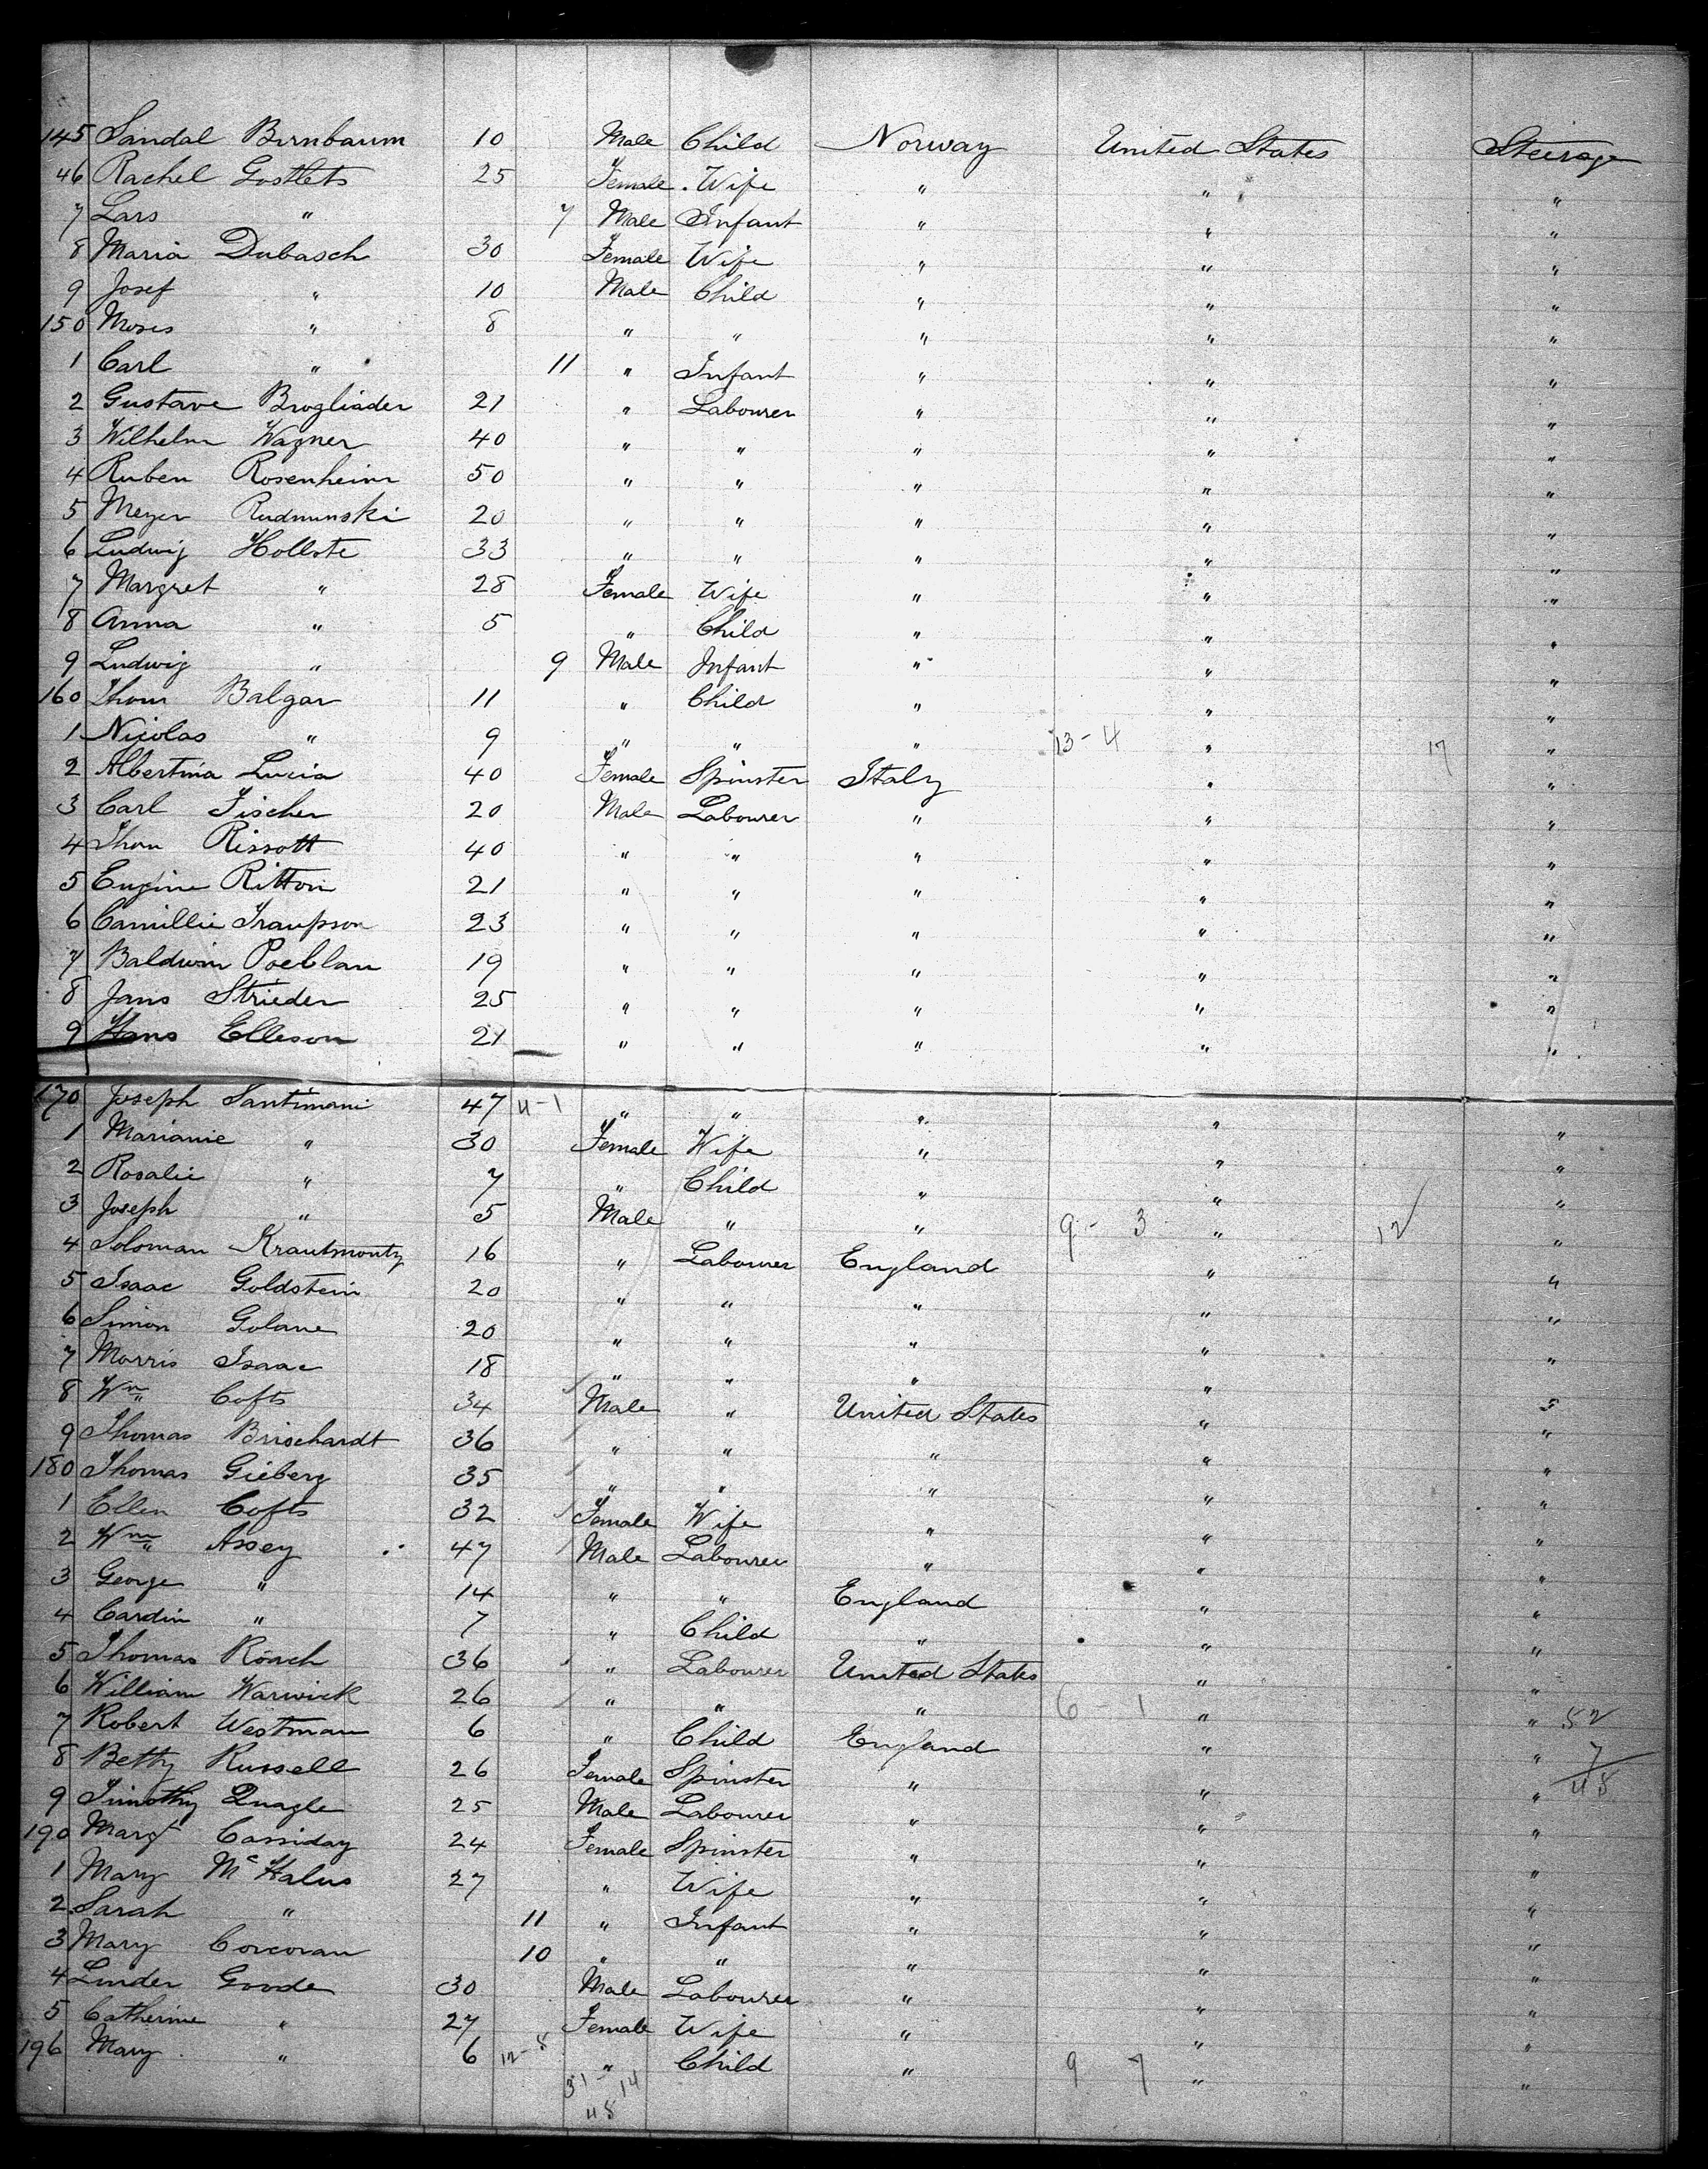 145 Sandal Birnbaum 10 Male Child Norway United States Steerage
46 Rachel Gostlets 25 Female Wife " " "
7 Lars " 7 Male Infant " " "
8 Maria Dubasch 30 Female Wife " " "
9 Josef " 10 Male Child " " "
150 Moses " 8 " " " " "
1 Carl " 11 " Infant " " "
2 Gustave Brogliader 21 " Labourer " " "
3 Wilhelm Wagner 40 " " " " "
4 Ruben Rosenheim 50 " " " " "
5 Meyer Rudmunski 20 " " " " "
6 Ludwig Hollste 33 " " " " "
7 Margret " 28 Female Wife " " "
8 Anna " 5 " Child " " "
9 Ludwig " 9 Male Infant " " "
160 Thom Balgar 11 " Child " " "
1 Nicolas " 9 " " " 13-4 " 17 "
2 Albertina Lucia 40 Female Spinster Italy " "
3 Carl Fischer 20 Male Labourer " " "
4 Thom Rissott 40 " " " " "
5 Eugine Ritton 21 " " " " "
6 Camillie Traupson 23 " " " " "
7 Baldwin Poeblau 19 " " " " "
8 Jans Strieder 25 " " " " "
9 Hans Elleson 21 " " " " "
170 Joseph Santimani 47 11-1 " " " " "
1 Marianie " 30 Female Wife " " "
2 Rosalie " 7 " Child " " "
3 Joseph " 5 Male " " 9-3 " 12 "
4 Soloman Krautmontz 16 " Labourer England " "
5 Isaac Goldstein 20 " " " " "
6 Simon Golane 20 " " " " "
7 Morris Isaac 18 " " " " "
8 Wm Cofts 34 Male " United States " "
9 Thomas Brischardt 36 " " " " "
180 Thomas Gieberg 35 " " " " "
1 Ellen Cofts 32 Female Wife " " "
2 Wm Assey 47 Male Labourer " " "
3 George " 14 " " England " "
4 Cardin " 7 " Child " " "
5 Thomas Roach 36 " Labourer United States " "
6 William Warwick 26 " " " 6-1 " " 52
7 Robert Westman 6 " Child England " " 7
8 Betty Russell 26 Female Spinster " " " 45
9 Timothy Quagle 25 Male Labourer " " "
190 Margt Cassiday 24 Female Spinster " " "
1 Mary McHalus 27 " Wife " " "
2 Sarah " 11 " Infant " " "
3 Mary Corcoran 10 " " " " "
4 Linder Goode 30 Male Labourer " " "
5 Catherine " 27 Female Wife " " "
196 Mary " 6 12-8 " Child " 9 7 " "
31-14
48